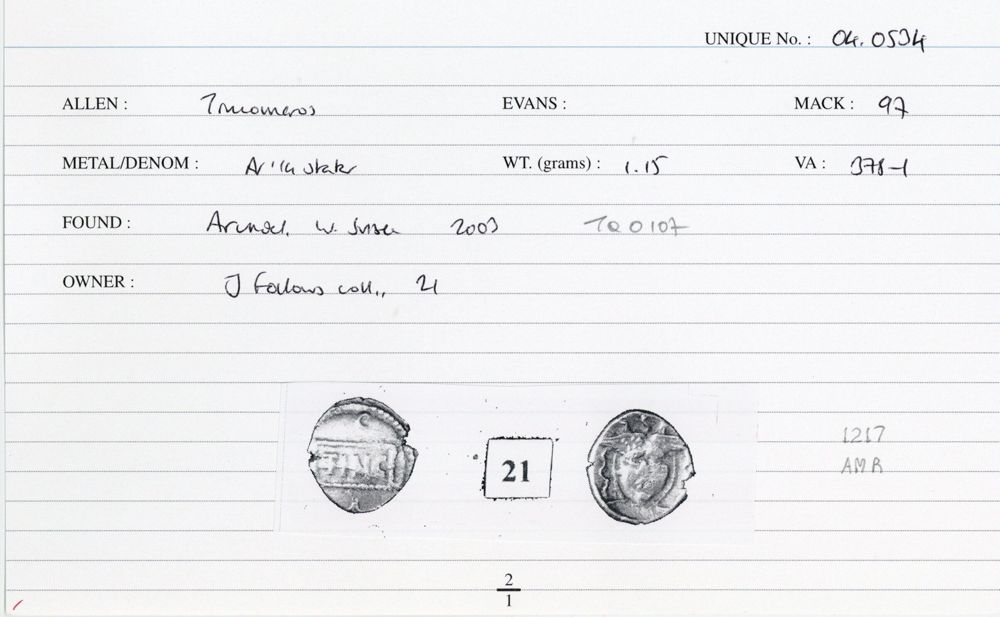 UNIQUE No. : 04.0534
ALLEN : EVANS : MACK : 97
METAL/DENOM : Ar ¼ stater WT. (grams) : 1.15 VA : 378-1
FOUND : Arundel, W. Sussex 2003 TQ 0107
OWNER : J Follows coll., 21
21
1217
AMR
2
1